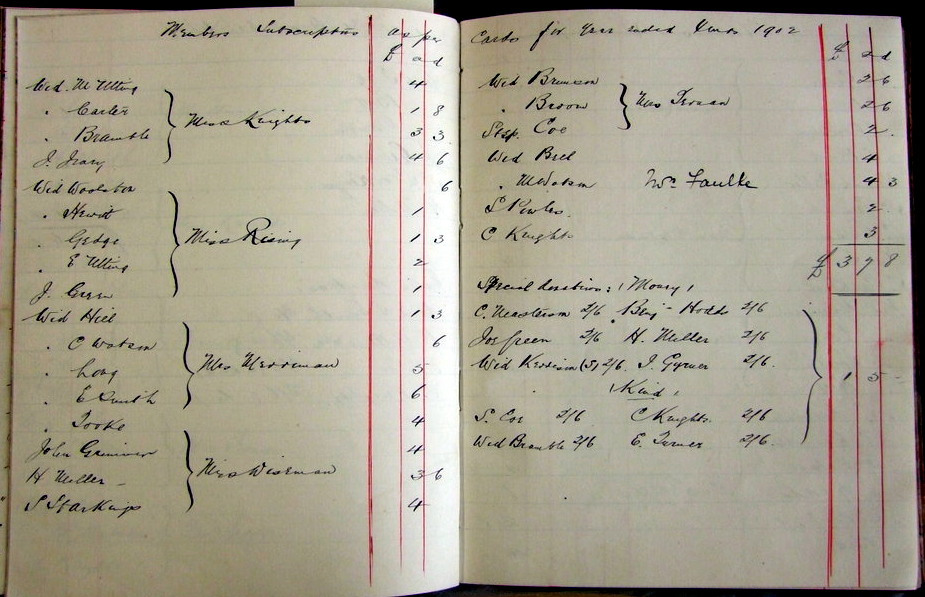 Members Subscriptions as per
£ s d
Wid. M Utting 4
" Carter 1 8
" Bramble Miss Knights 3 3
J. Ivany 4 6
Wid Woolston 6
" Hewitt 1
" Gedge Miss Rising 1 3
" E Utting 2
J. Green 1
Wid Hill 1 3
" C Watson 6
" Long Mrs Merriman 5
" E Smith 6
" Tooke 4
John Grimmer 4
H Miller Mrs Wiseman 3 6
S Starkings 4
Cards for Year ended 1902
£ s d
Wid Brunson 2 6
" Broom Mrs 2 6
Step. Coe 2
Wid Bell 4
" M Watson Mrs Faulke 4 3
S Powles 2
C Knights 3
£ 3 7 8
Special donations: (Money)
C. 2/6 Benj Hodds 2/6
Jos Green 2/6 H. Miller 2/6
Wid Kerrison (S) 2/6. I. Gymer 2/6. 1 5 -
(Kind)
S. Coe 2/6 C Knights 2/6
Wid Bramble 2/6 E. Turner 2/6.